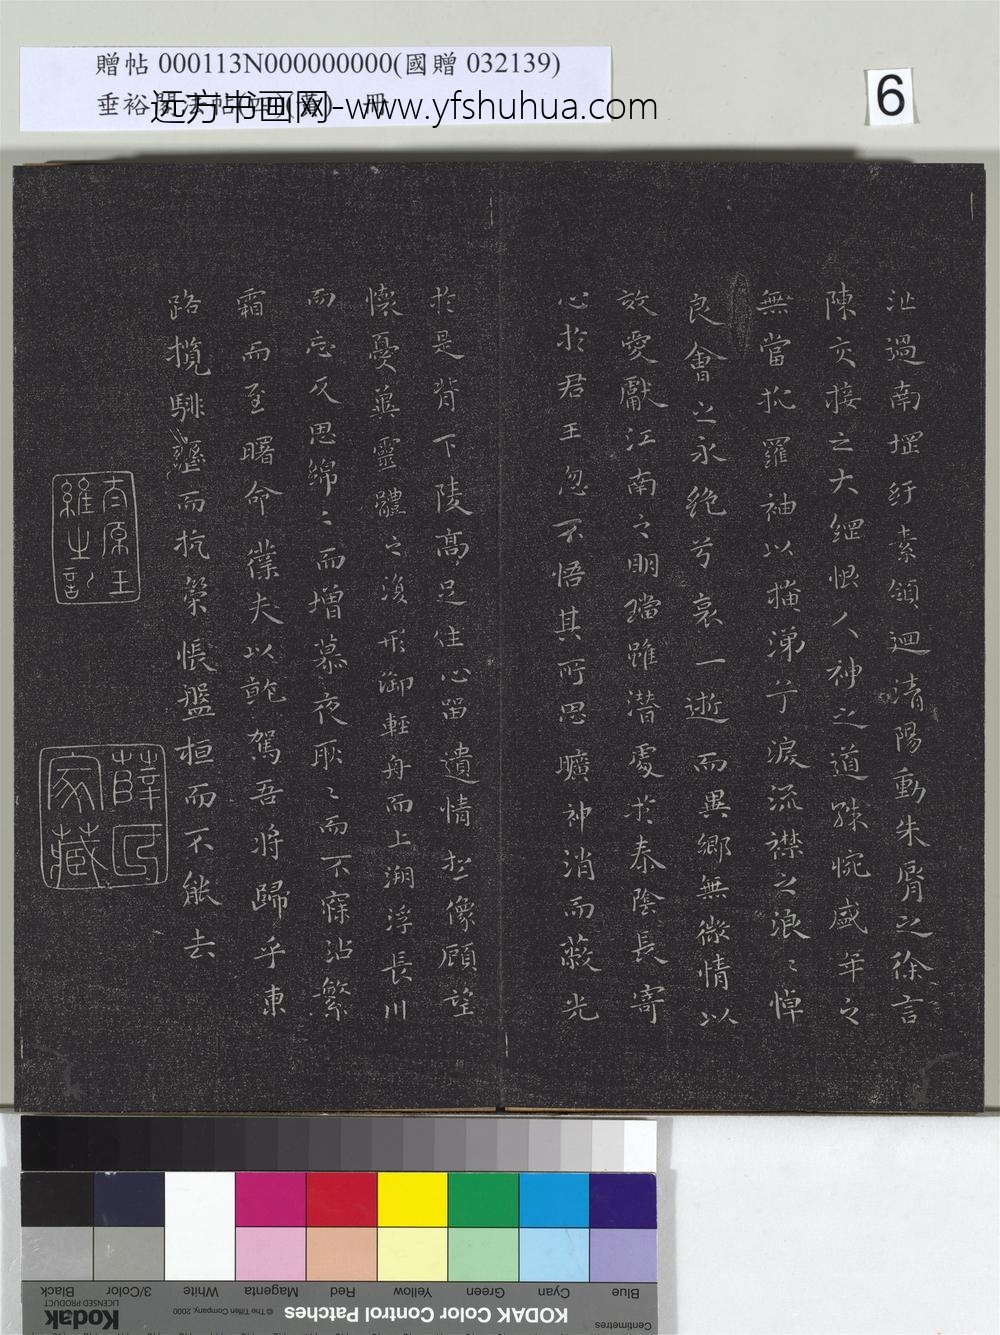 贈帖 000113N000000000(國贈 032139)
远方书画网-www.yfshuhua.com
6
沚過南堽纡素領迴清陽動朱脣之徐言
陳交接之大綱恨人神之道殊惋盛年之
無當抗羅袖以掩涕兮淚流襟之浪〻悼
良會之永絶兮哀一逝而異鄉無微情以
效愛獻江南之明璫雖潛處於泰陰長寄
心於君王忽不悟其所思曠神消而蔽光
於是背下陵高足住心留遺情想像顧望
懷憂冀靈體之復形御輕舟而上溯浮長川
而忘反思綿〻而增慕夜耿〻而不寐沾繁
霜而至曙命僕夫以就駕吾將歸乎東
路攬騑轡而抗策悵盤桓而不能去
太原王
維之記
薛氏
家藏
Blue
Cyan
Green
Yellow
Red
Magenta
White
3/Color
Black
Centimetres
KODAK Color Control Patches
© The Tiffen Company, 2000
Kodak
LICENSED PRODUCT